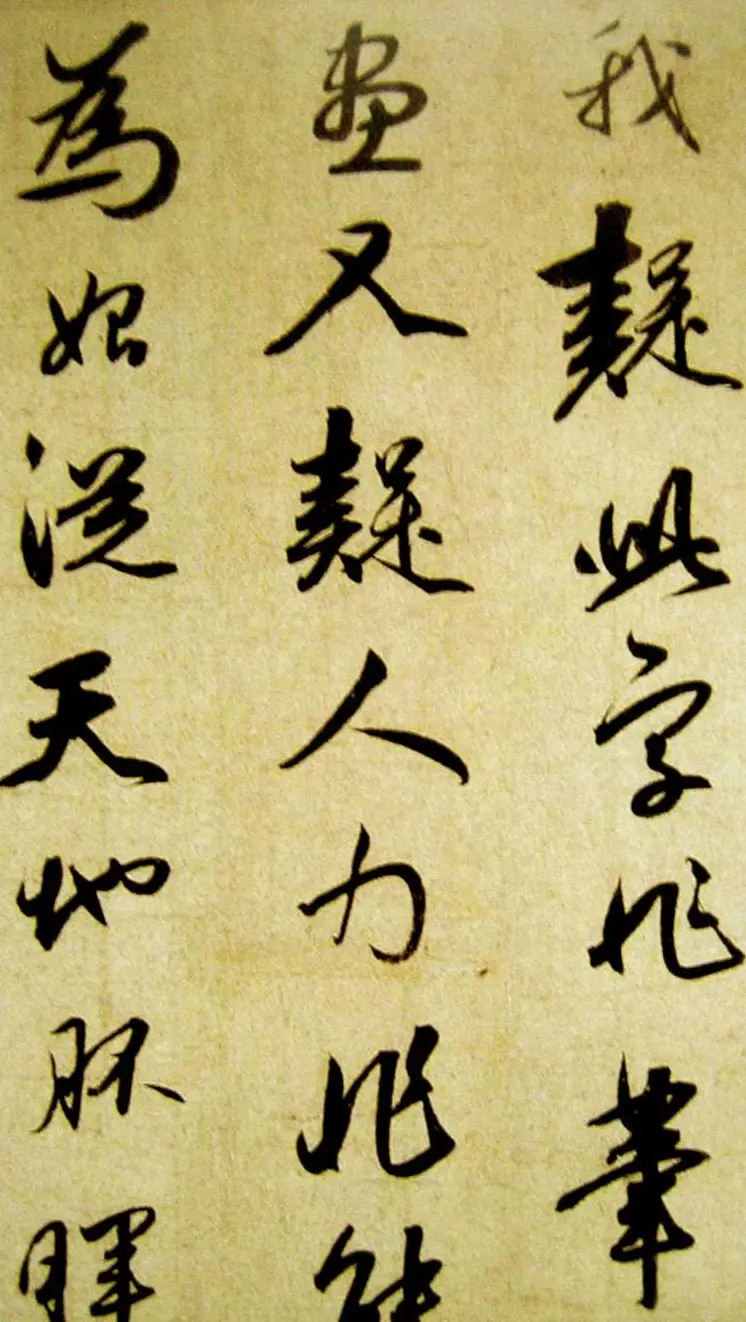 我疑此字非筆
畫又疑人力非能
為始從天地胚暉